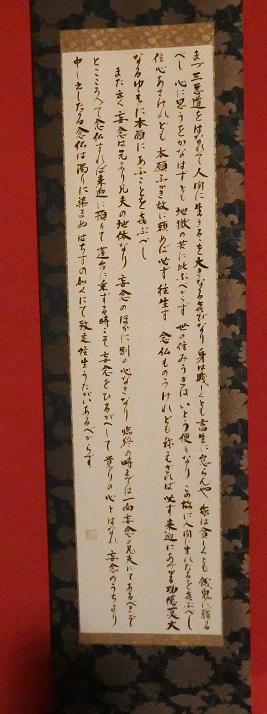 まづ三悪道をはなれて人間に生るること大きなる喜びなり 身は賤しくとも畜生に劣らんや 家は貧しくとも餓鬼に勝る
べし 心に思うことかなはずとも 地獄の苦に比ぶべからず 世の住みうきはいとう便りなり この故に人間に生れたることを喜ぶべし
信心あさけれども 本願ふかき故に頼めば必ず往生す 念仏ものうけれども称ふれば必ず来迎にあづかる功徳莫大
なるゆゑに本願にあふことを喜ぶべし
また云く妄念は元より凡夫の地体なり 妄念のほかに別の心なきなり 臨終の時までは一向妄念の凡夫にてあるべきぞ
とこころえて念仏すれば来迎に預りて蓮台に乗ずる時こそ妄念をひるがへして覚りの心とはなれ 妄念のうちより
申し出したる念仏は濁りに染まぬはちすの如くにて決定往生うたがいあるべからず